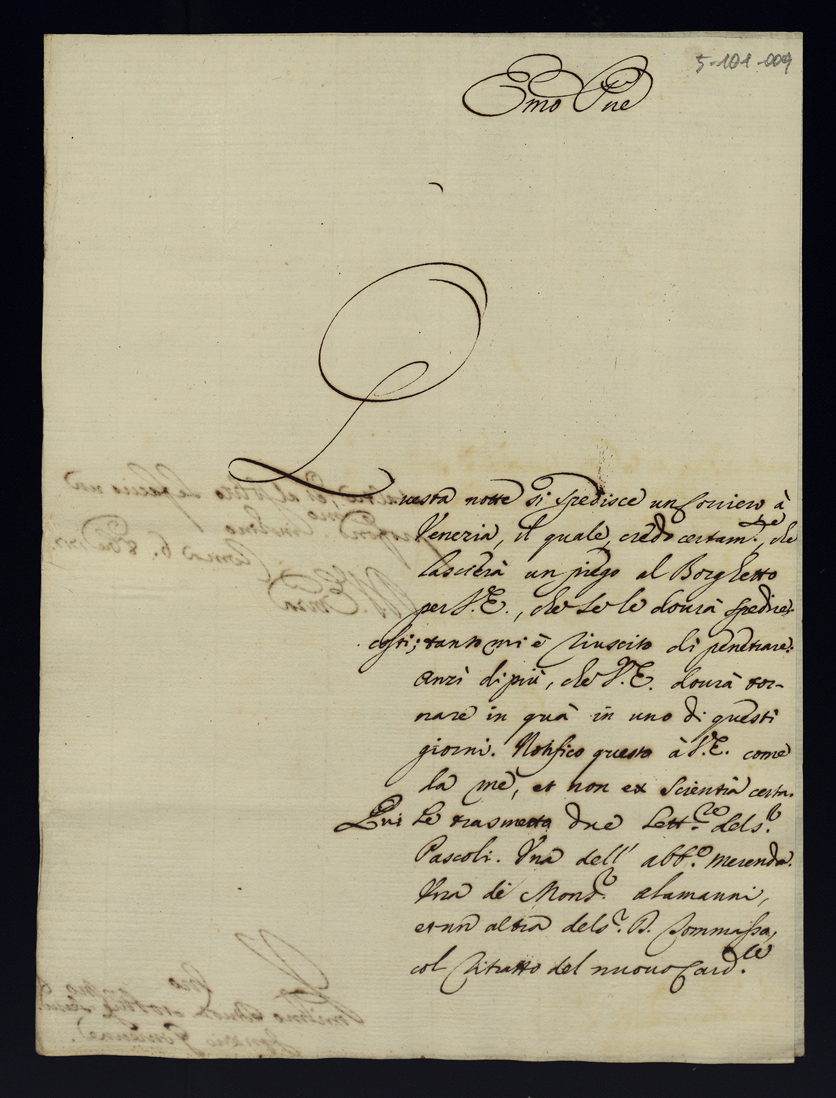 5-101-009
Emo Pne
Questa notte si spedisce un Corriero à
Venezia, il quale, credo certam.te, che
lascierà un piego al Borghetto
per V.E., che se le dourà spedire
costi; tanto mi è riuscito di penetrare.
anzi di più, che V.E. dourà tor-
nare in quà in uno di questi
giorni. Notifico questo à V.E. come
da me, et non ex scientia certa.
Qui Le trasmetto due Lett.re del S.r
Pascoli. Una dell' abb.e Merenda.
Una di Mons.r Alamanni,
et un altra del S.r D. Commissa,
col ritratto del nuovo Card.le